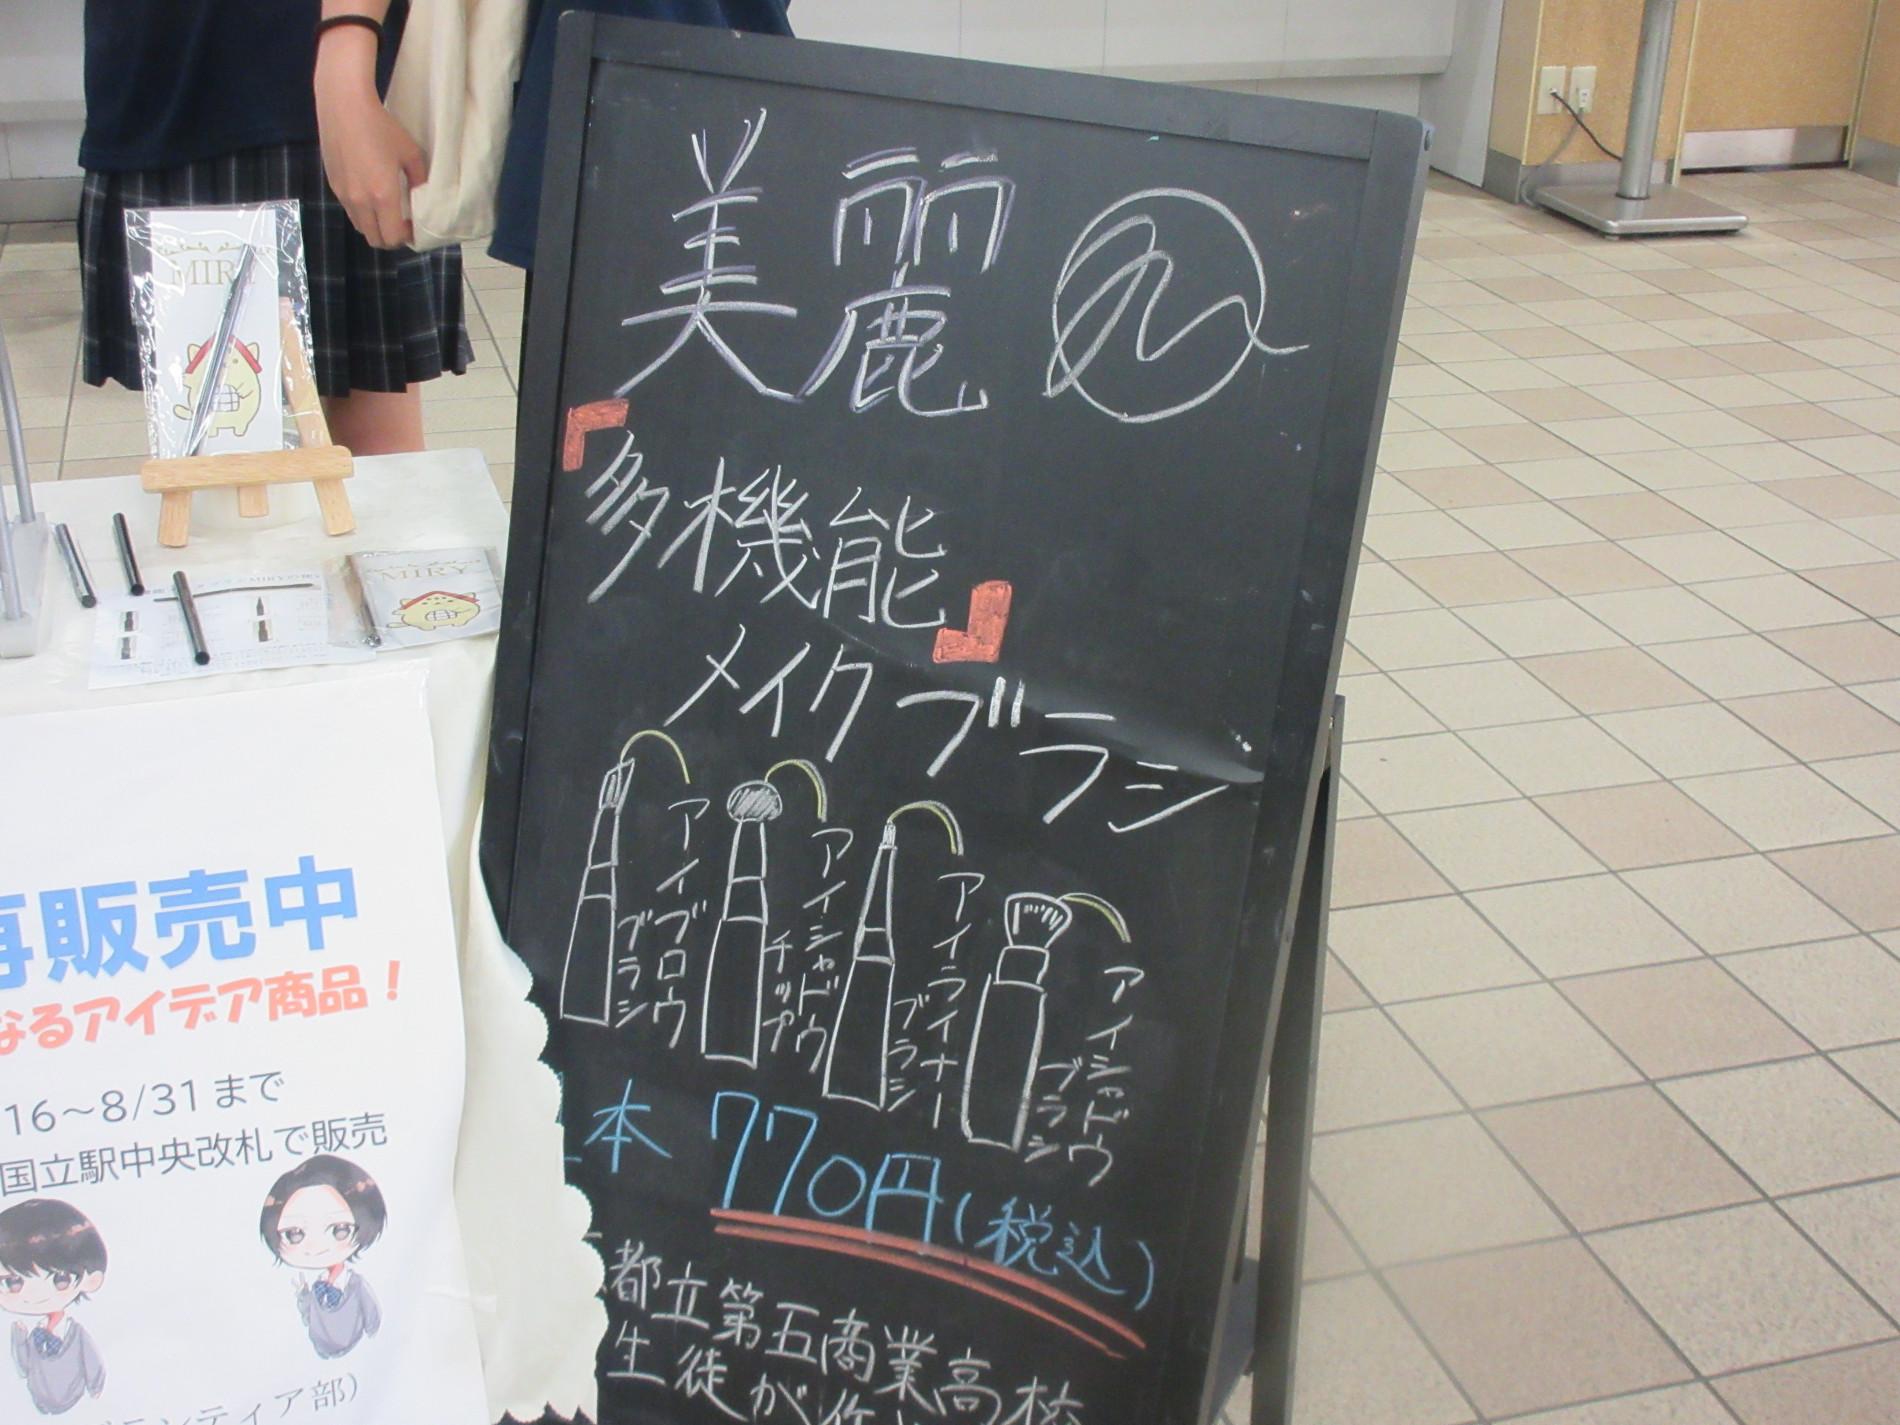 美麗
「多機能」
メイクブラシ
アイブロウ
ブラシ
アイシャドウ
チップ
アイライナー
ブラシ
アイシャドウ
ブラシ
本 770円(税込)
都立第五商業高校
生徒が作
MIRY
MIRY
再販売中
なるアイデア商品!
16~8/31まで
国立駅中央改札で販売
ランティア部)